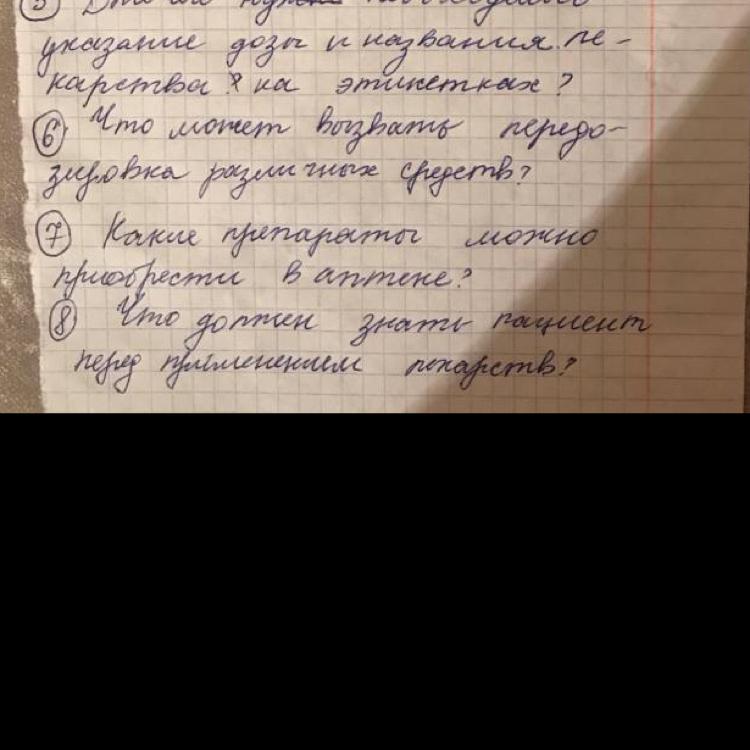 5
указание дозы и названия ле-
карства на этикетках?
6 Что может вызвать передо-
зировка различных средств?
7 Какие препараты можно
приобрести в аптеке?
8 Что должен знать пациент
перед применением лекарств?